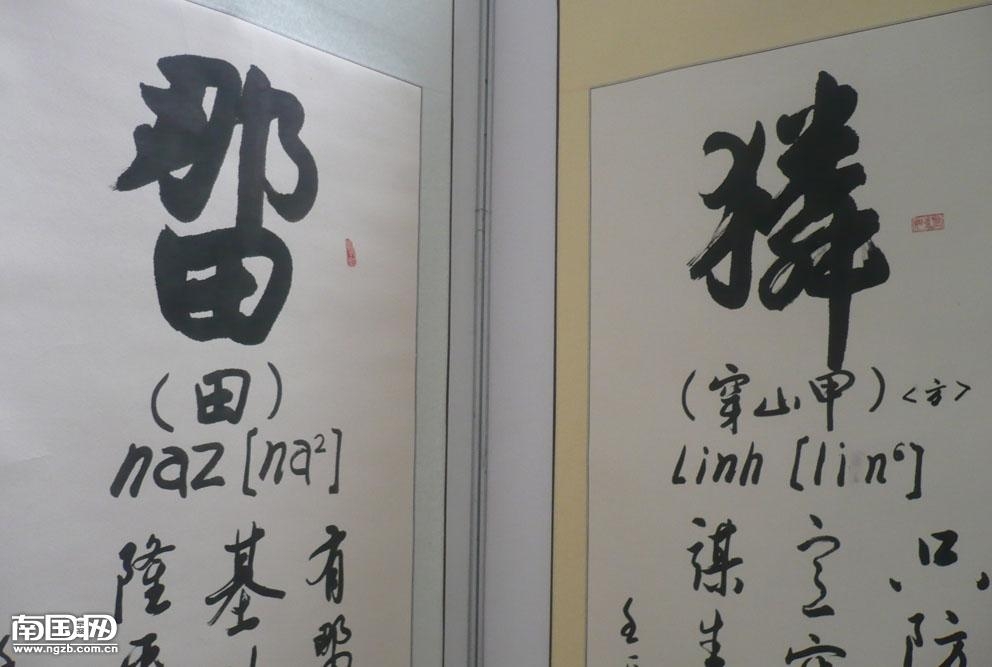 𭒹
（田）
naz [na²]
有那
基
隆
獜
（穿山甲）<方>
Linh [lin⁶]
口防
谋生
南国网
www.ngzb.com.cn